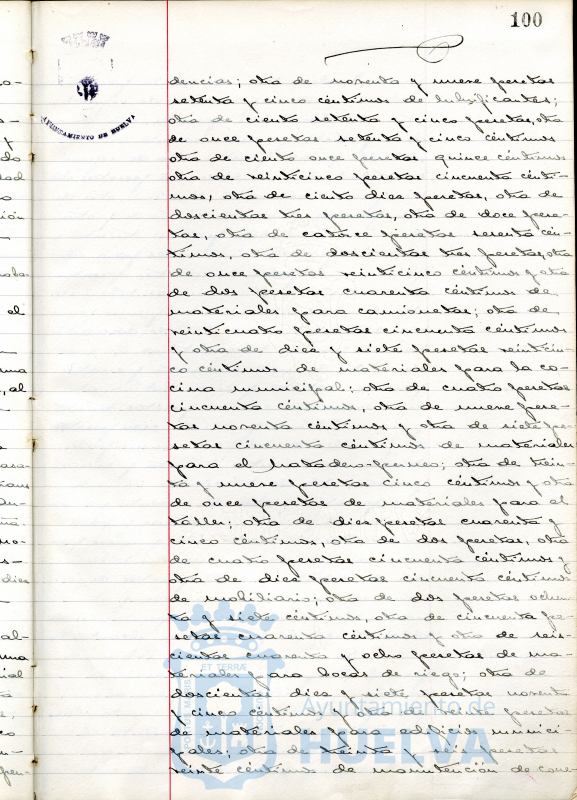 100
AYUNTAMIENTO DE HUELVA
dencias; otra de noventa y nueve pesetas
setenta y cinco céntimos de lubrificantes;
otra de ciento setenta y cinco pesetas, otra
de once pesetas setenta y cinco céntimos
otra de ciento once pesetas quince céntimos
otra de veinticinco pesetas cincuenta cénti-
mos, otra de ciento diez pesetas, otra de
doscientas tres pesetas, otra de doce pese-
tas, otra de catorce pesetas sesenta cén-
timos, otra de doscientas tres pesetas, otra
de once pesetas veinticinco céntimos y otra
de dos pesetas cuarenta céntimos de
materiales para camionetas; otra de
veinticuatro pesetas cincuenta céntimos
y otra de diez y siete pesetas veinticin-
co céntimos de materiales para la co-
cina municipal; otra de cuatro pesetas
cincuenta céntimos, otra de nueve pese-
tas noventa céntimos y otra de siete pe-
setas cincuenta céntimos de materiales
para el Matadero-perneo; otra de trein-
ta y nueve pesetas cinco céntimos y otra
de once pesetas de materiales para el
taller; otra de diez pesetas cuarenta y
cinco céntimos, otra de dos pesetas, otra
de cuatro pesetas cincuenta céntimos y
otra de diez pesetas cincuenta céntimos
de mobiliario; otra de dos pesetas ochen-
ta y siete céntimos, otra de cincuenta pe-
setas cuarenta céntimos y otra de seis-
cientas cuarenta y ocho pesetas de ma-
teriales para bocas de riego; otra de
doscientas diez y siete pesetas noventa
y cinco céntimos y otra de veinte pesetas
de materiales para edificios munici-
pales; otra de treinta y seis pesetas
veinte céntimos de manutención de
Ayuntamiento de
HUELVA